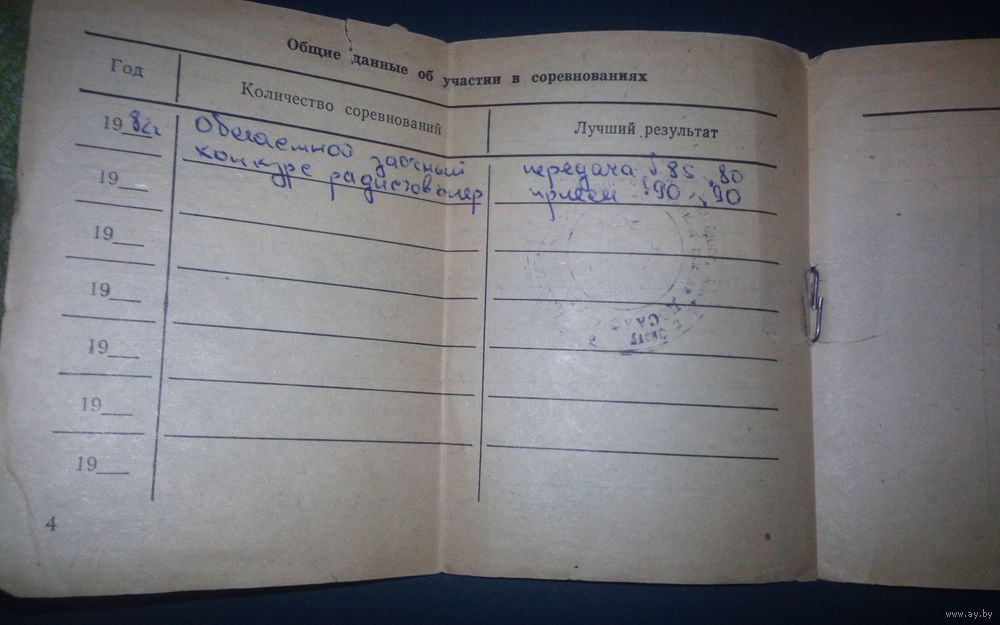 Общие данные об участии в соревнованиях
Год
Количество соревнований
Лучший результат
1982г
заочный
передача 85 80
конкурс
прием 90 90
19__
19__
19__
19__
19__
19__
4
www.ay.by